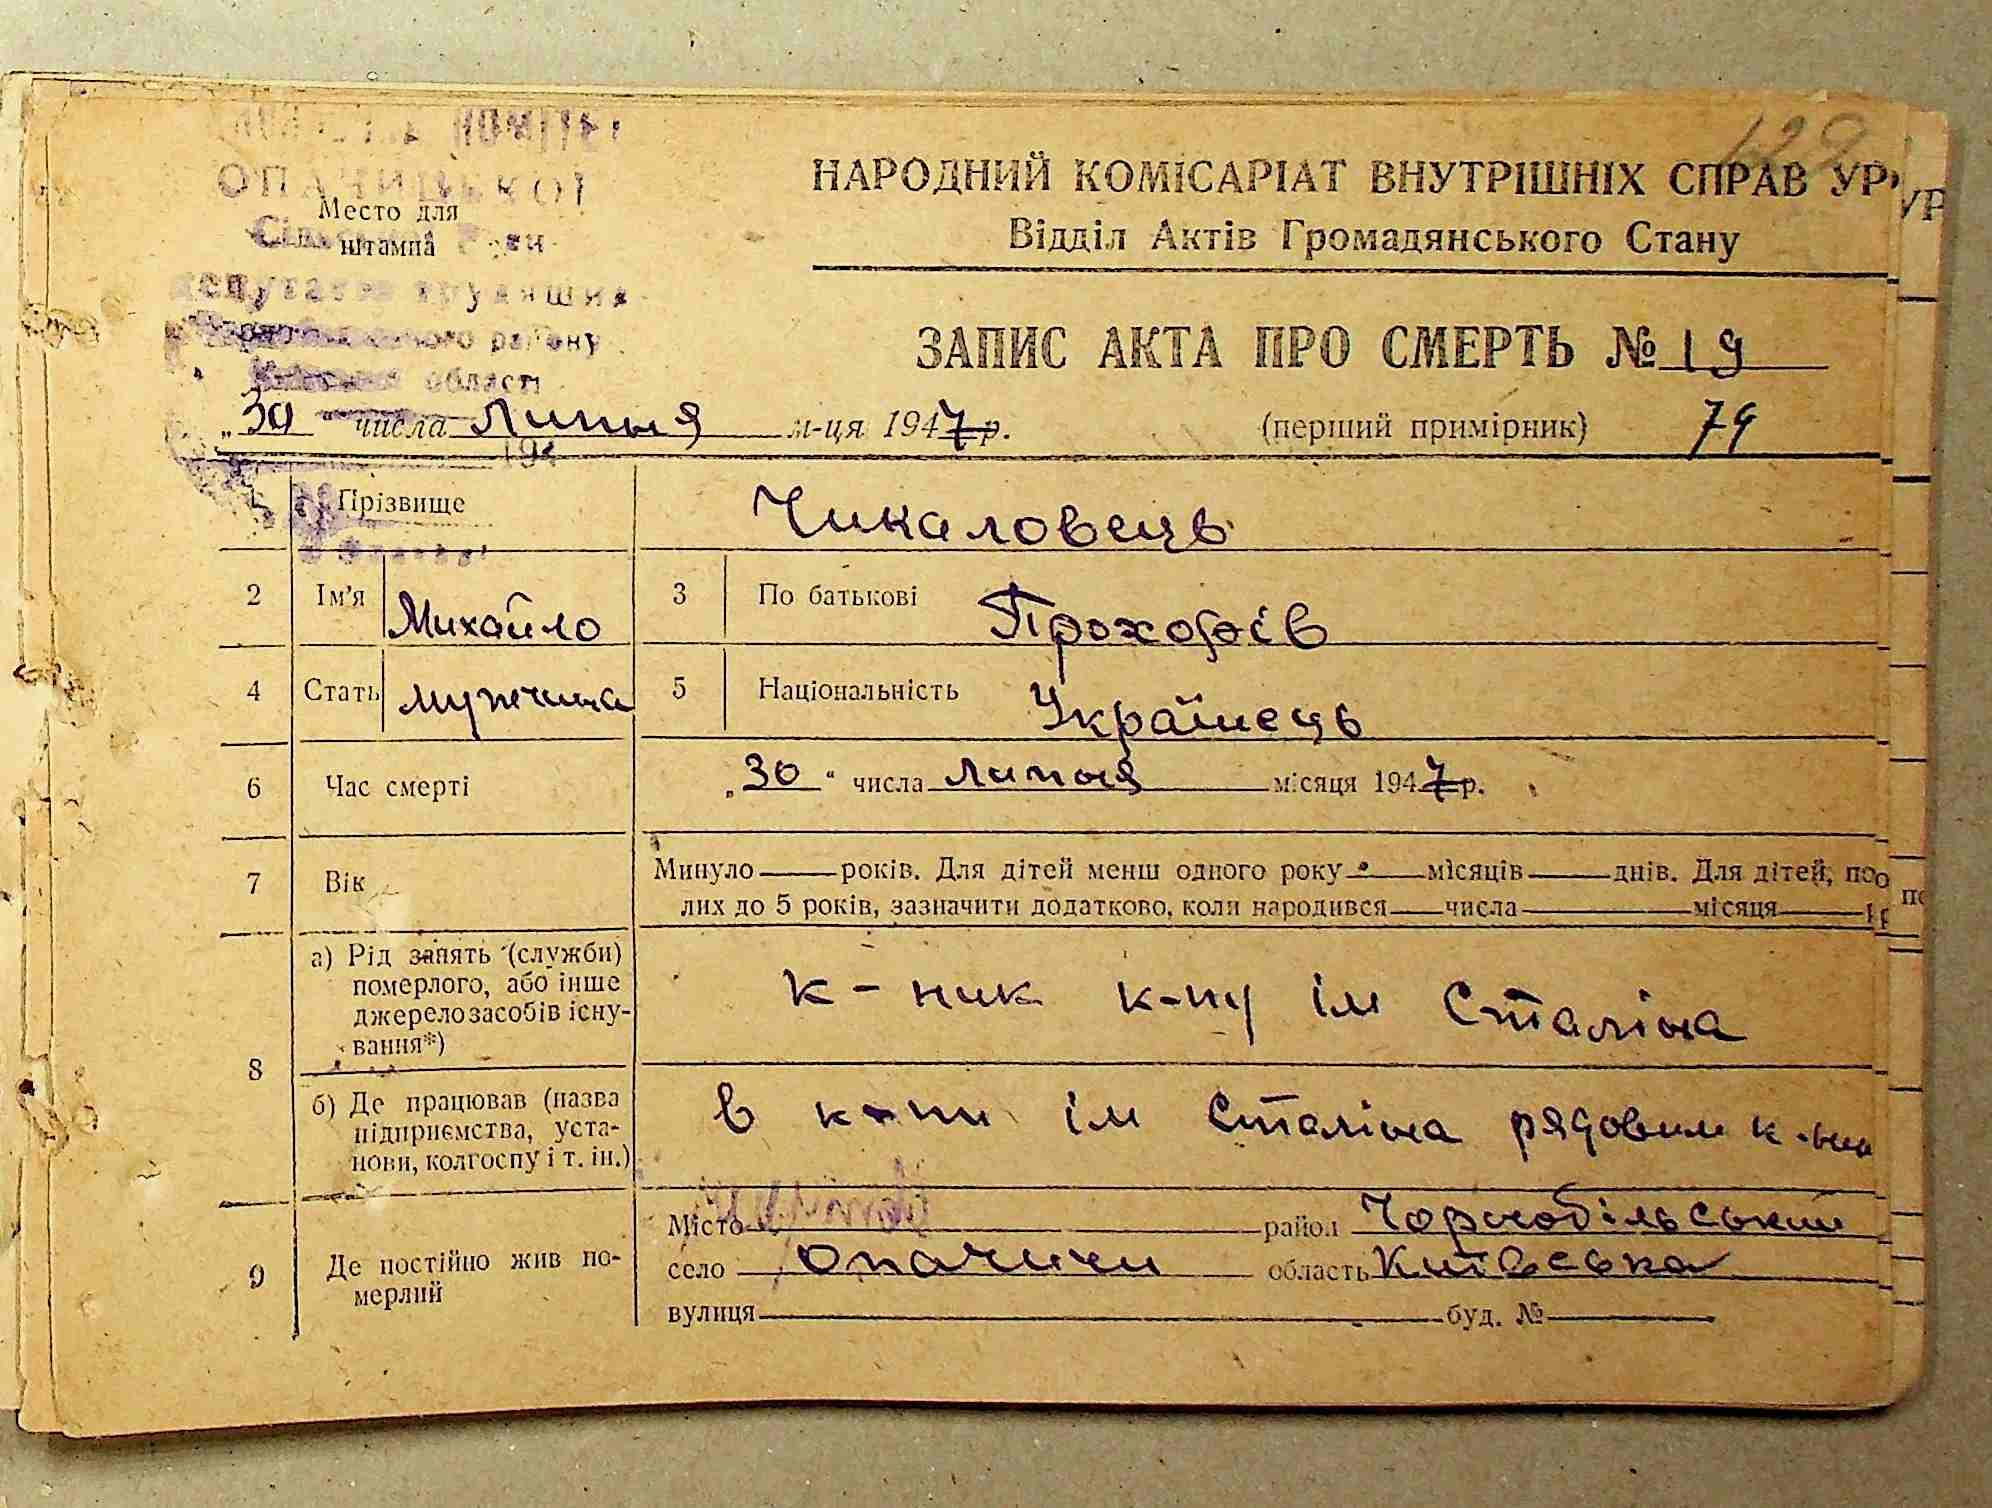 129
ОПАЧИЦЬКОЇ
Место для
штампа
депутатів трудящих
району
області
НАРОДНИЙ КОМІСАРІАТ ВНУТРІШНІХ СПРАВ УР
Відділ Актів Громадянського Стану
ЗАПИС АКТА ПРО СМЕРТЬ № 19
„30“ числа Липня м-ця 1947 р. (перший примірник) 79
Прізвище Чикаловець
2 Ім'я Михайло 3 По батькові Прохофів
4 Стать мужчина 5 Національність Українець
6 Час смерті „30“ числа Липня місяця 1947 р.
7 Вік Минуло — років. Для дітей менш одного року — місяців — днів. Для дітей, по
лих до 5 років, зазначити додатково, коли народився — числа — місяця
8 а) Рід занять (служби) померлого, або інше джерело засобів існування*) к-ник к-пу ім Сталіна
б) Де працював (назва підприємства, установи, колгоспу і т. ін.) в к-пи ім Сталіна рядовим
9 Де постійно жив померлий
Місто район Чорнобільський
село Опачичи область Київська
вулиця — буд. № —